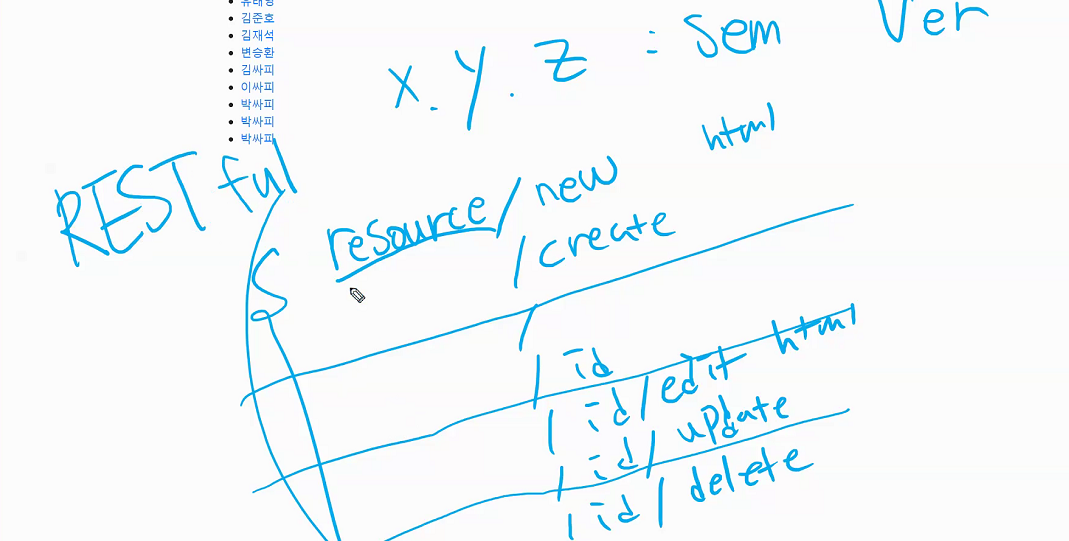 김준호
김재석
변승환
김싸피
이싸피
박싸피
박싸피
박싸피
x.y.z : Sem Ver
html
RESTful
resource/new
/create
/
/id
/id/edit html
/id/update
/id/delete